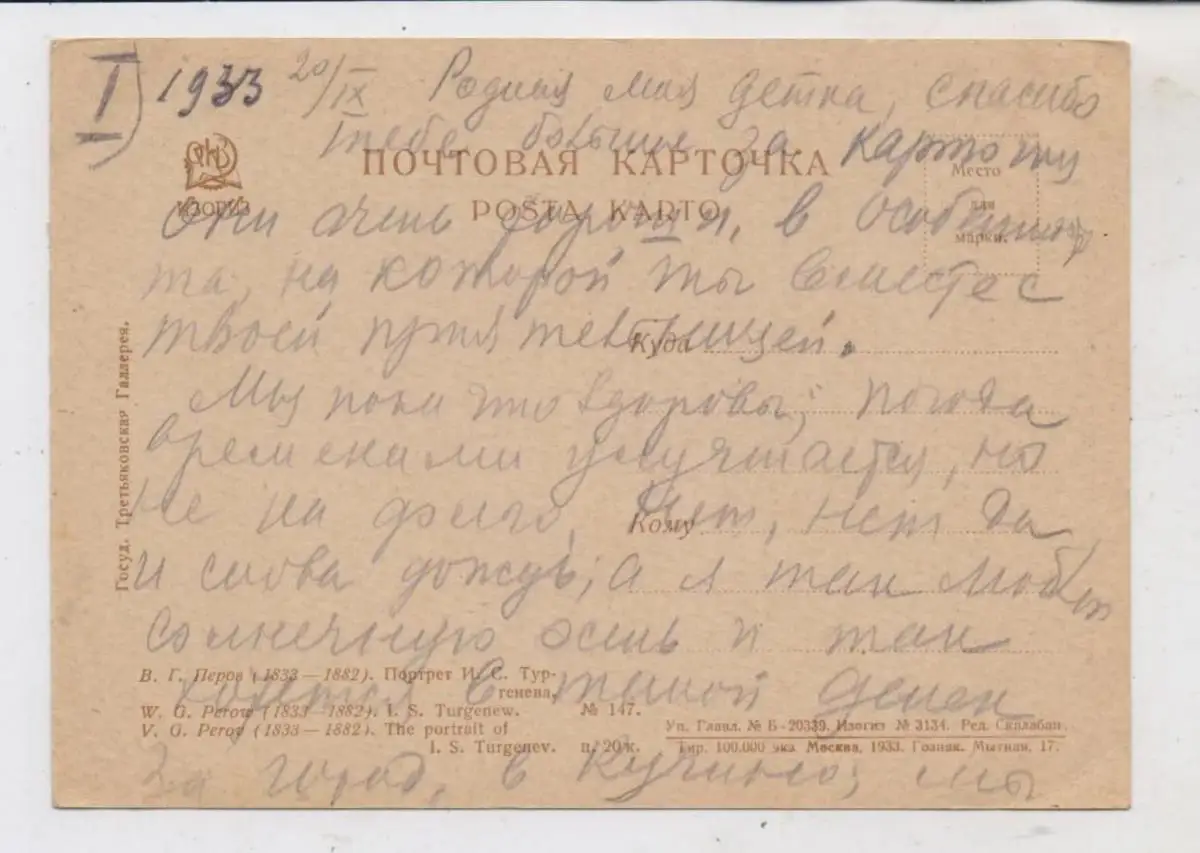 I) 1933 20/IX Родная моя детка, спасибо
Тебе большое за карточку
ПОЧТОВАЯ КАРТОЧКА
POŜTA KARTO
ИЗОГИЗ
Место
для
марки.
Они очень хороши, в особенности
та, на которой ты вместе с
твоей приятельницей.
Куда
Мы пока что здоровы; погода
временами улучшается, но
не на долго, нет, нет да
Кому
и снова дождь; а я так люблю
солнечную осень и так
хочется в такой денек
за город, в Кучино; мы
Госуд. Третьяковская Галлерея.
В. Г. Перов (1833—1882). Портрет И. С. Тур-
генева.
W. G. Perow (1833—1882). I. S. Turgenew. № 147.
V. G. Perov (1833—1882). The portrait of
I. S. Turgenev. ц. 20 к.
Уп. Главл. № Б-20339. Изогиз № 3134. Ред. Скалабан.
Тир. 100.000 экз. Москва, 1933. Гознак. Мытная, 17.